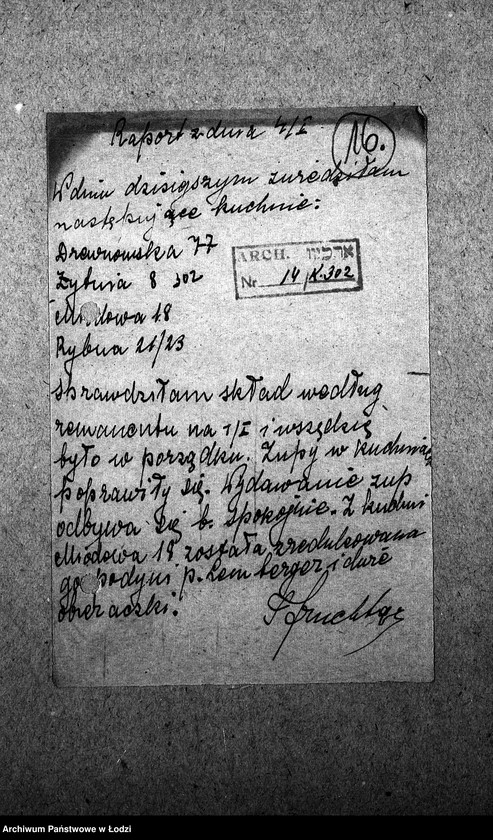 Raport z dnia 4/I
16.
W dniu dzisiejszym zwiedziłam
następujące kuchnie:
Drewnowska 77
Żytnia 8 302
Miodowa 18
Rybna 21/23
ARCH. ארכיון
Nr 14 /X.302
Sprawdziłam skład według
remanentu na 1/I i wszędzie
było w porządku. Zupy w kuchniach
poprawiły się. Wydawanie zup
odbywa się b. spokojnie. Z kuchni
Miodowa 18 została zredukowana
gospodyni p. Lemberger i dwie
obieraczki.
Archiwum Państwowe w Łodzi